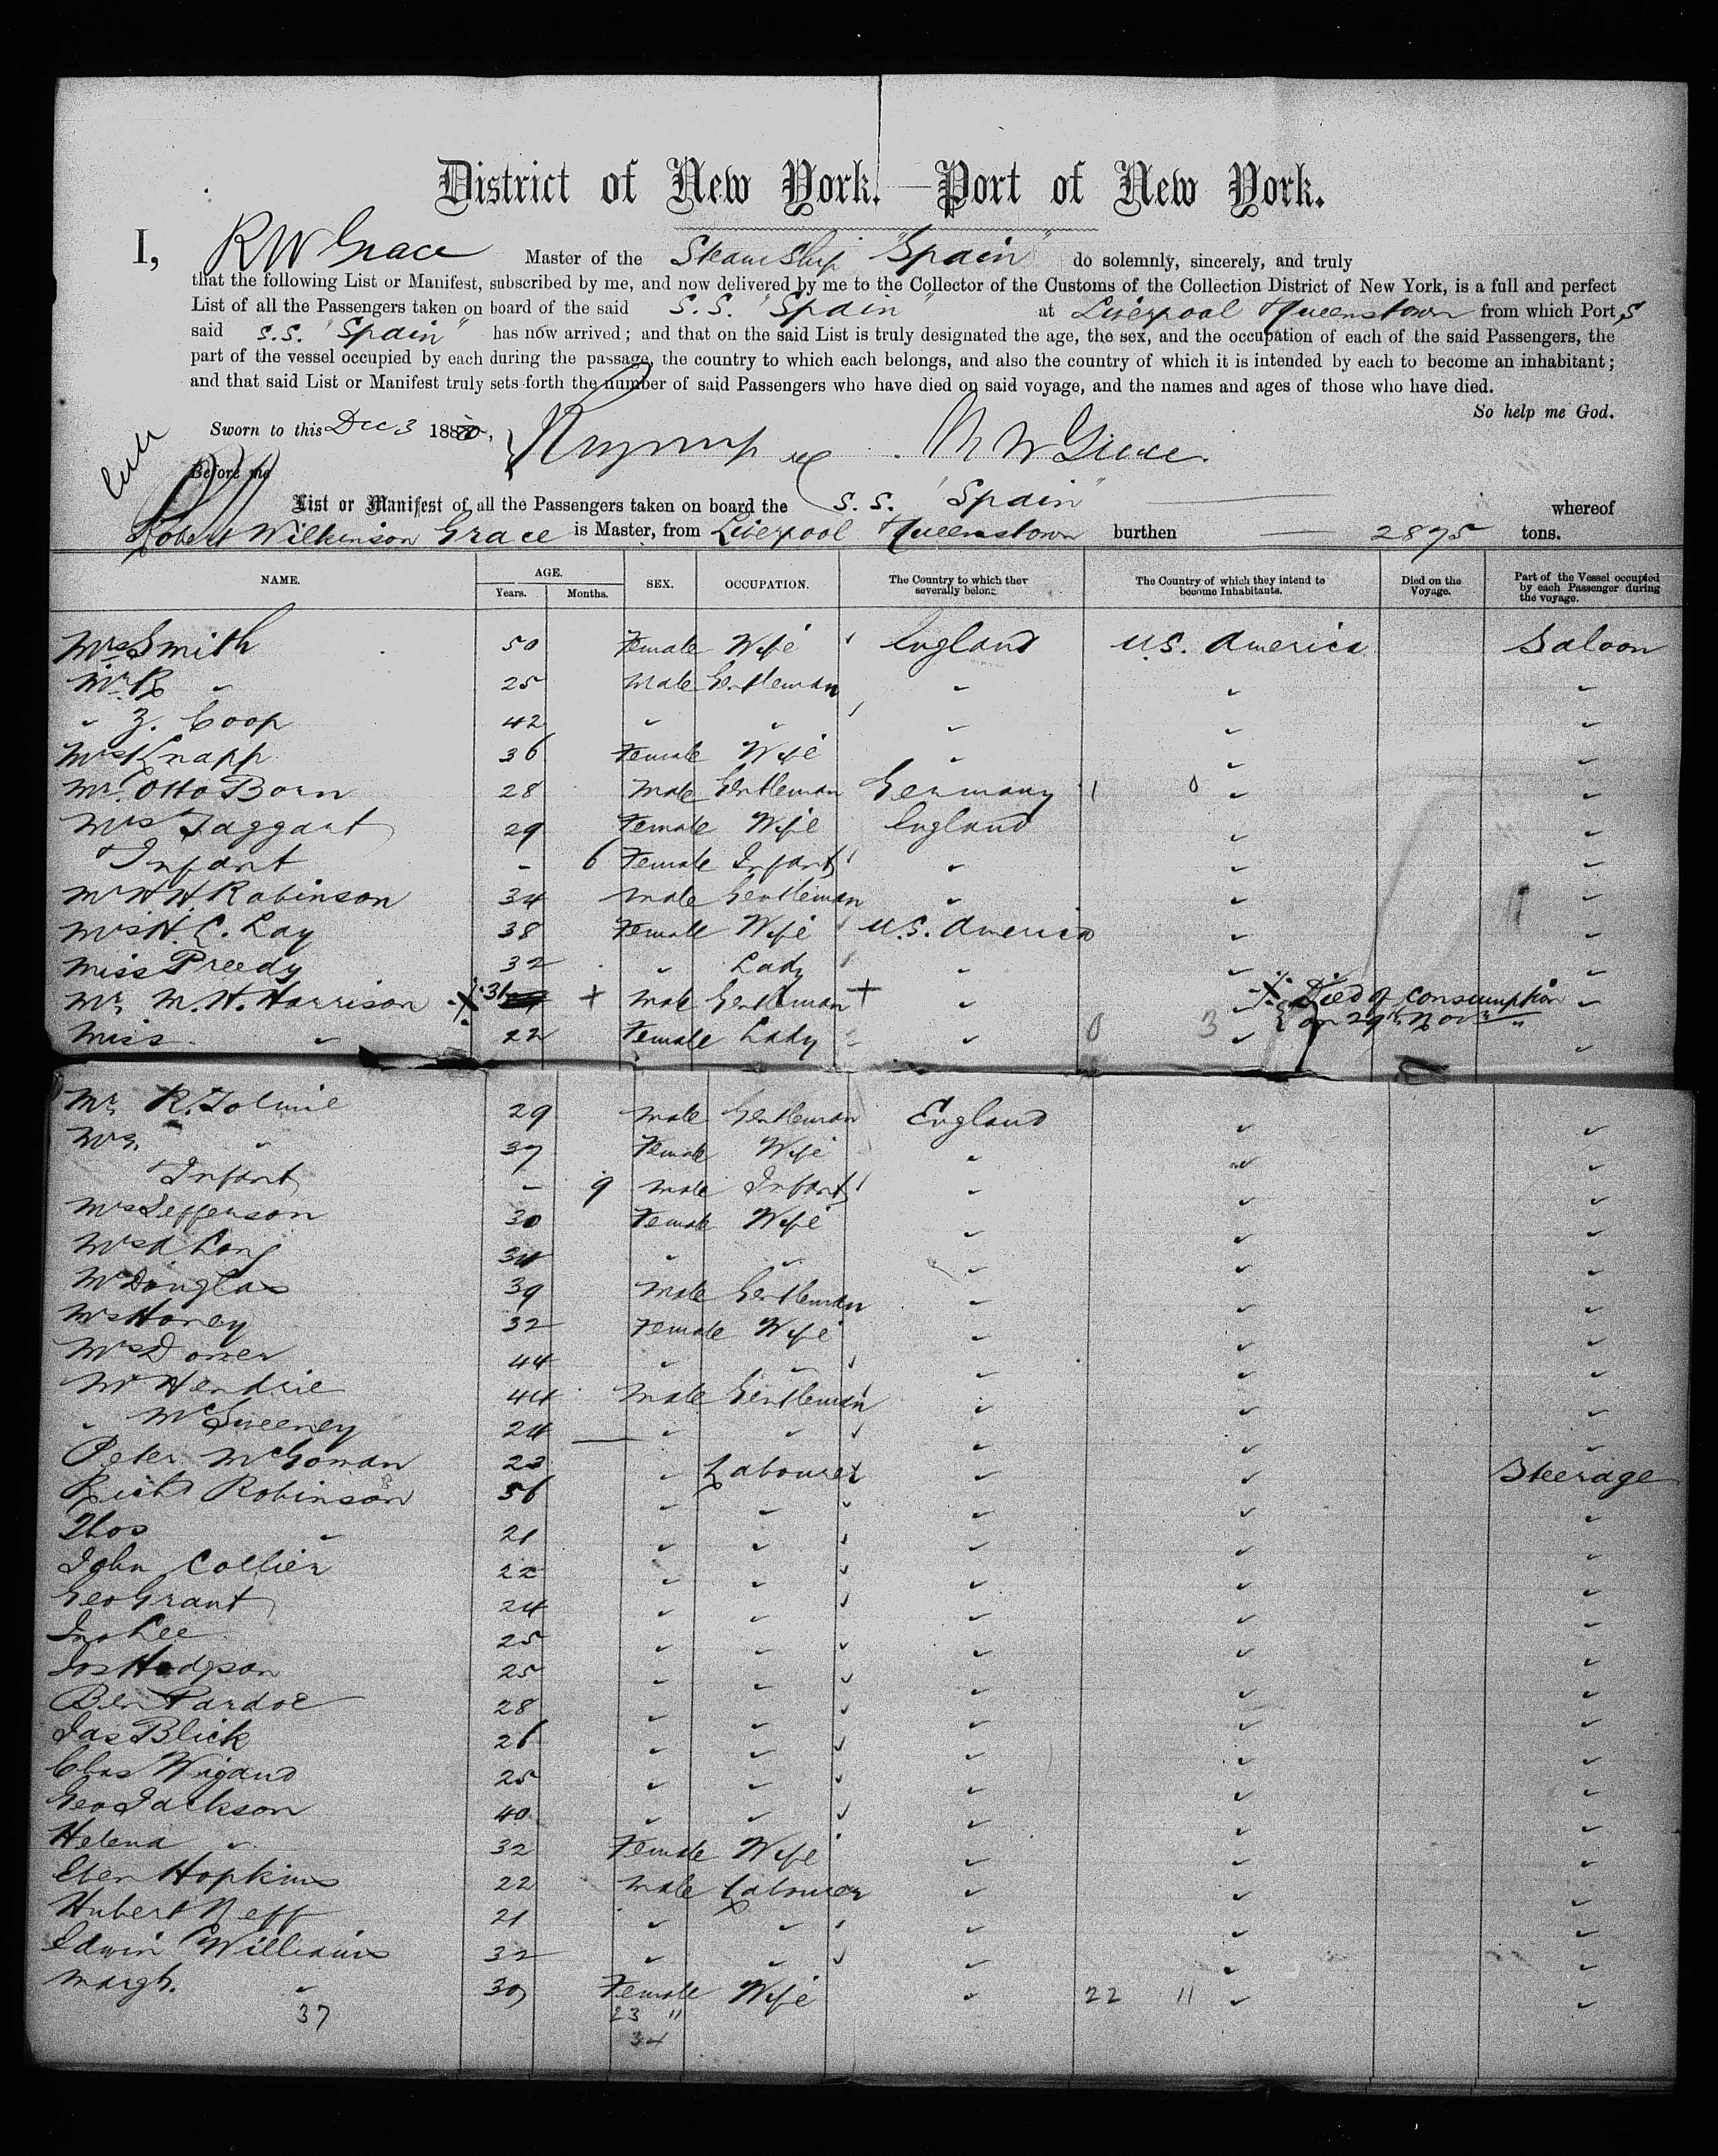 District of New York. — Port of New York.
I, R W Grace Master of the Steam Ship "Spain" do solemnly, sincerely, and truly
that the following List or Manifest, subscribed by me, and now delivered by me to the Collector of the Customs of the Collection District of New York, is a full and perfect
List of all the Passengers taken on board of the said S.S. "Spain" at Liverpool & Queenstown from which Port s
said S.S. "Spain" has now arrived; and that on the said List is truly designated the age, the sex, and the occupation of each of the said Passengers, the
part of the vessel occupied by each during the passage, the country to which each belongs, and also the country of which it is intended by each to become an inhabitant;
and that said List or Manifest truly sets forth the number of said Passengers who have died on said voyage, and the names and ages of those who have died.
So help me God.
Sworn to this Dec 3 1880, R W Grace.
Before me
List or Manifest of all the Passengers taken on board the S.S. "Spain" whereof
Robert Wilkinson Grace is Master, from Liverpool & Queenstown burthen 2895 tons.
NAME. AGE. Years. Months. SEX. OCCUPATION. The Country to which they severally belong. The Country of which they intend to become Inhabitants. Died on the Voyage. Part of the Vessel occupied by each Passenger during the voyage.
Mrs Smith 50 Female Wife England U.S. America Saloon
Mr R " 25 Male Gentleman " " "
" Z. Coop 42 " " " " "
Mrs Knapp 36 Female Wife " " "
Mr. Otto Born 28 Male Gentleman Germany 1 0 " "
Mrs Taggart 29 Female Wife England " "
" Infant - 6 Female Infant " " "
Mr H H. Robinson 34 Male Gentleman " " "
Mrs H. C. Lay 38 Female Wife U.S. America " "
Miss Preedy 32 " Lady " " "
Mr. M. H. Harrison 31 + Male Gentleman + " " Died of Consumption on 29th Novr "
Miss " 22 Female Lady " 0 3 " "
Mr. R. Tolmie 29 Male Gentleman England " "
Mrs. " 37 Female Wife " " "
" Infant - 9 Male Infant " " "
Mrs Jefferson 30 Female Wife " " "
Mrs A Long 34 " " " " "
Mr Douglas 39 Male Gentleman " " "
Mrs Honey 32 Female Wife " " "
Mrs Doner 44 " " " " "
Mr Hendrie 44 Male Gentleman " " "
" McSweeney 24 " " " " "
Peter McGowan 23 " Labourer " " Steerage
Richd Robinson 56 " " " " "
Thos " 21 " " " " "
John Collier 22 " " " " "
Geo Grant 24 " " " " "
Jno Lee 25 " " " " "
Jos Hodgson 25 " " " " "
Ben Pardoe 28 " " " " "
Jas Blick 26 " " " " "
Chas Wigand 25 " " " " "
Geo Jackson 40 " " " " "
Helena " 32 Female Wife " " "
Eben Hopkins 22 Male Labourer " " "
Hubert Neff 21 " " " " "
Edwin Williams 32 " " " " "
Margt. " 30 Female Wife " 22 11 " "
37 23 11
34